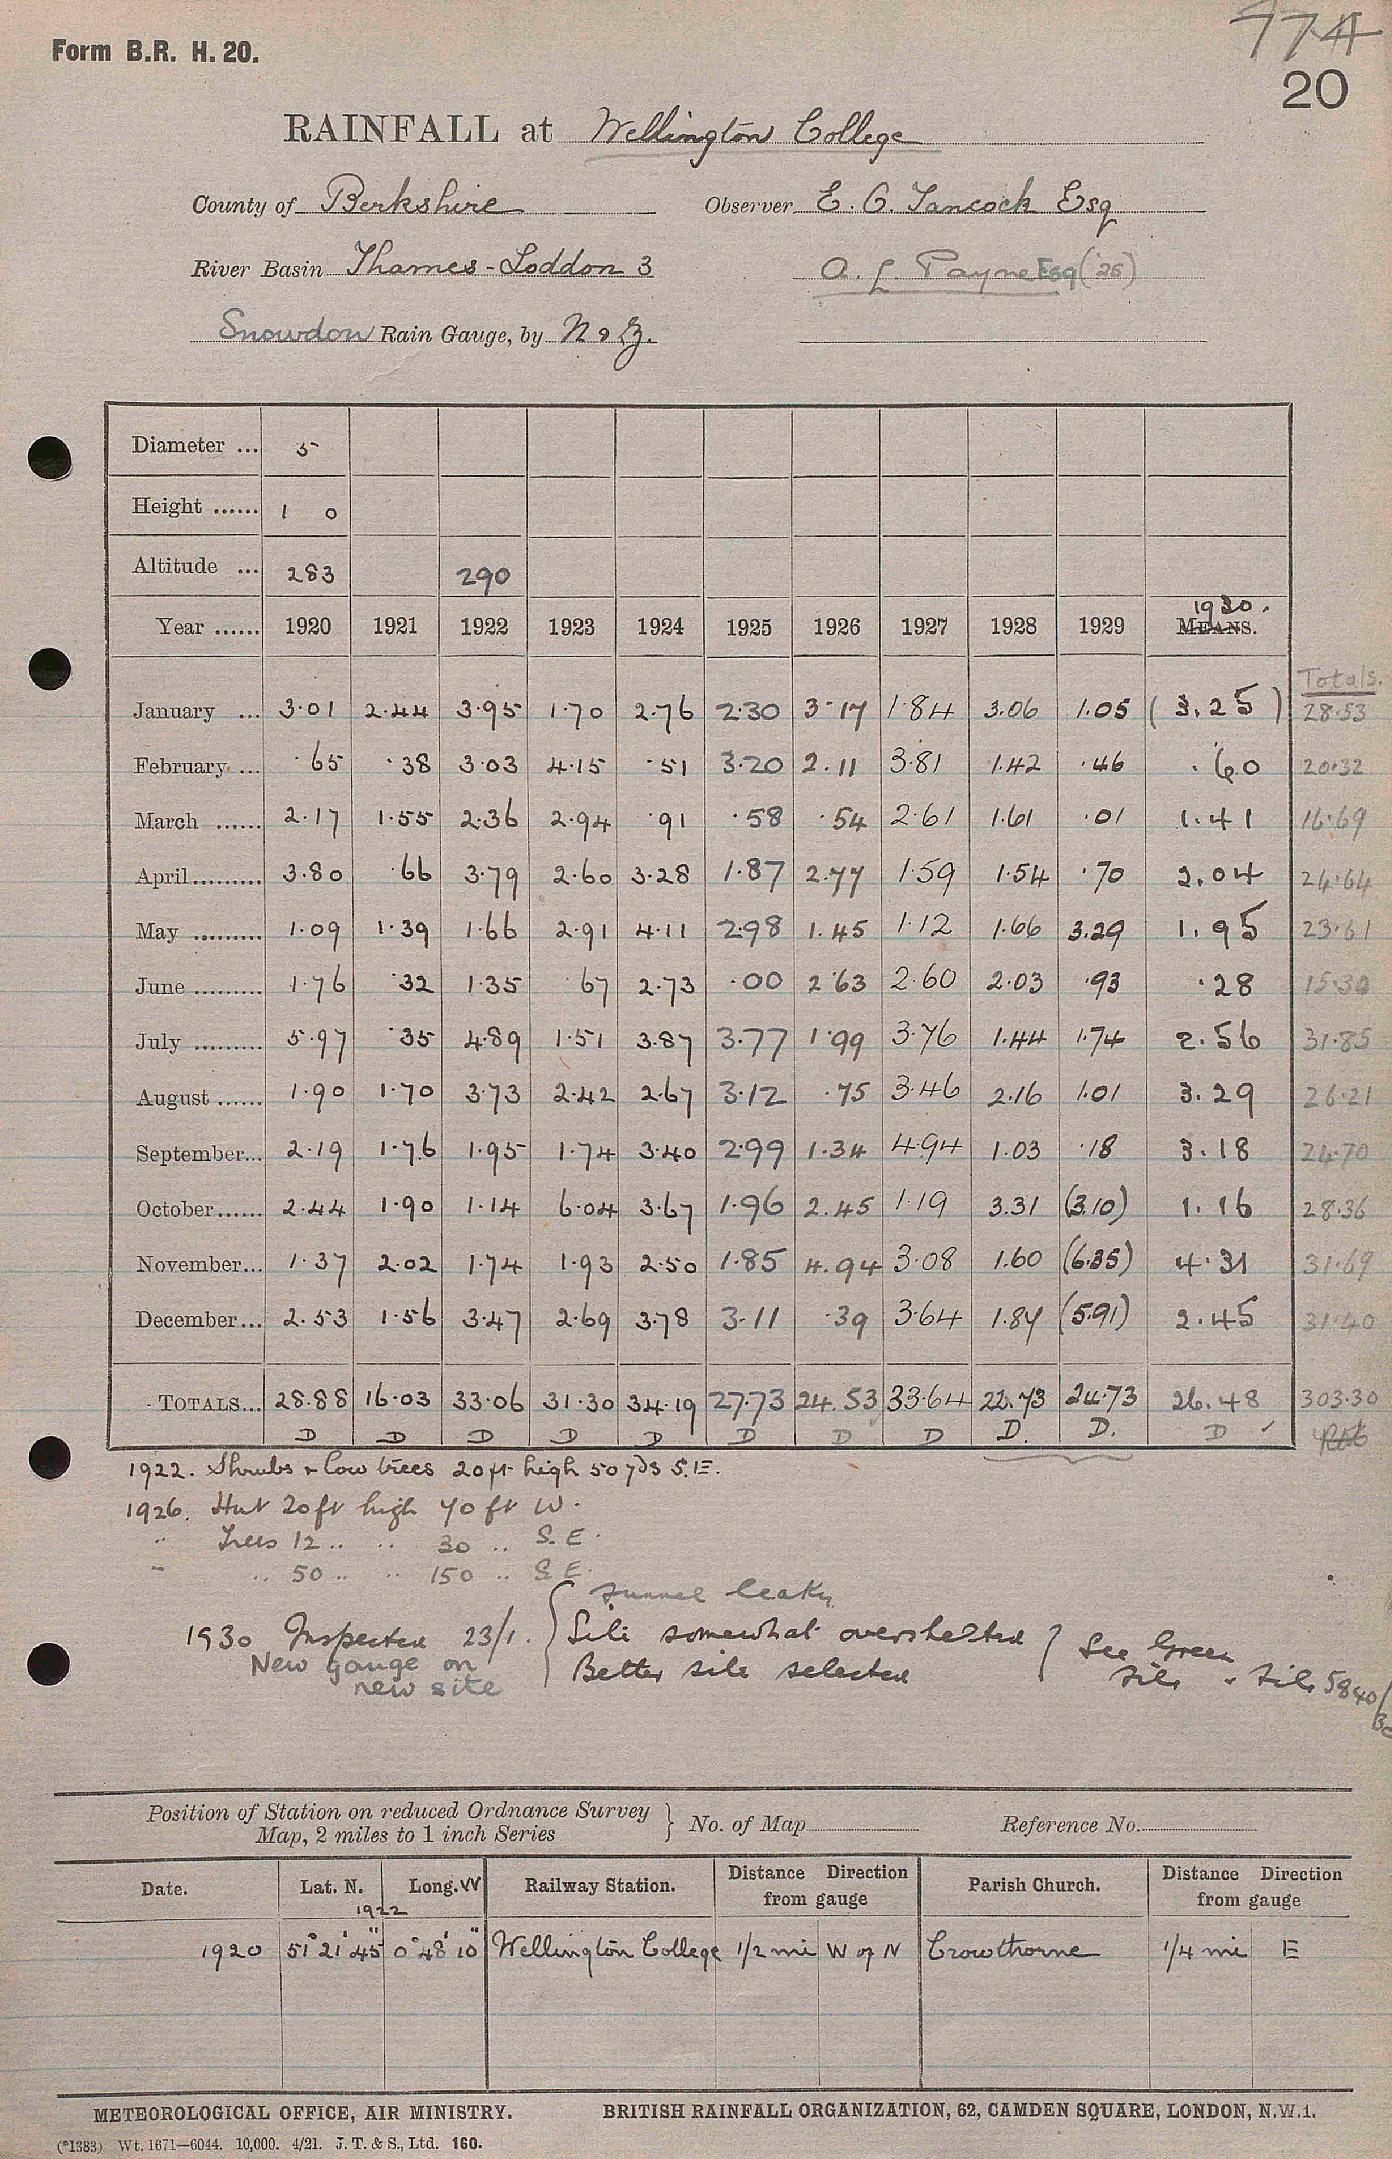 Form B.R. H. 20.
774
20
RAINFALL at Wellington College
County of Berkshire Observer E. C. Tancock Esq
River Basin Thames - Loddon 3 A. L Payne Esq ('26)
Snowdon Rain Gauge, by N & Z.
Diameter ... 5
Height ...... 1 0
Altitude ... 283 290
Year ...... 1920 1921 1922 1923 1924 1925 1926 1927 1928 1929 1930. MEANS.
Totals.
January ... 3.01 2.44 3.95 1.70 2.76 2.30 3.17 1.84 3.06 1.05 (3.25) 28.53
February ... .65 .38 3.03 4.15 .51 3.20 2.11 3.81 1.42 .46 .60 20.32
March ...... 2.17 1.55 2.36 2.94 .91 .58 .54 2.61 1.61 .01 1.41 16.69
April......... 3.80 .66 3.79 2.60 3.28 1.87 2.77 1.59 1.54 .70 2.04 24.64
May ......... 1.09 1.39 1.66 2.91 4.11 2.98 1.45 1.12 1.66 3.29 1.95 23.61
June ......... 1.76 .32 1.35 .67 2.73 .00 2.63 2.60 2.03 .93 .28 15.30
July ......... 5.97 .35 4.89 1.51 3.87 3.77 1.99 3.76 1.44 1.74 2.56 31.85
August ...... 1.90 1.70 3.73 2.42 2.67 3.12 .75 3.46 2.16 1.01 3.29 26.21
September... 2.19 1.76 1.95 1.74 3.40 2.99 1.34 4.94 1.03 .18 3.18 24.70
October...... 2.44 1.90 1.14 6.04 3.67 1.96 2.45 1.19 3.31 (3.10) 1.16 28.36
November... 1.37 2.02 1.74 1.93 2.50 1.85 4.94 3.08 1.60 (6.35) 4.31 31.69
December... 2.53 1.56 3.47 2.69 3.78 3.11 .39 3.64 1.87 (5.91) 2.45 31.40
TOTALS... 28.88 16.03 33.06 31.30 34.19 27.73 24.53 33.64 22.73 24.73 26.48 303.30
D D D D D D D D D. D. D ✓
1922. Shrubs & low trees 20ft high 50 yds S.E.
1926. Hut 20ft high 40 ft W.
" Trees 12 .. .. 30 .. S.E.
" .. 50 .. .. 150 .. S.E.
funnel leaky
1930 Inspected 23/1. { Site somewhat oversheltered } See Green
New gauge on Better site selected file & file 5840/
new site
Position of Station on reduced Ordnance Survey } No. of Map Reference No.
Map, 2 miles to 1 inch Series
Date. Lat. N. Long. W Railway Station. Distance Direction from gauge Parish Church. Distance Direction from gauge
1922
1920 51° 21' 45" 0° 48' 10" Wellington College 1/2 mi W of N Crowthorne 1/4 mi E
METEOROLOGICAL OFFICE, AIR MINISTRY. BRITISH RAINFALL ORGANIZATION, 62, CAMDEN SQUARE, LONDON, N.W.1.
(*1383) Wt. 1671—6044. 10,000. 4/21. J. T. & S., Ltd. 160.